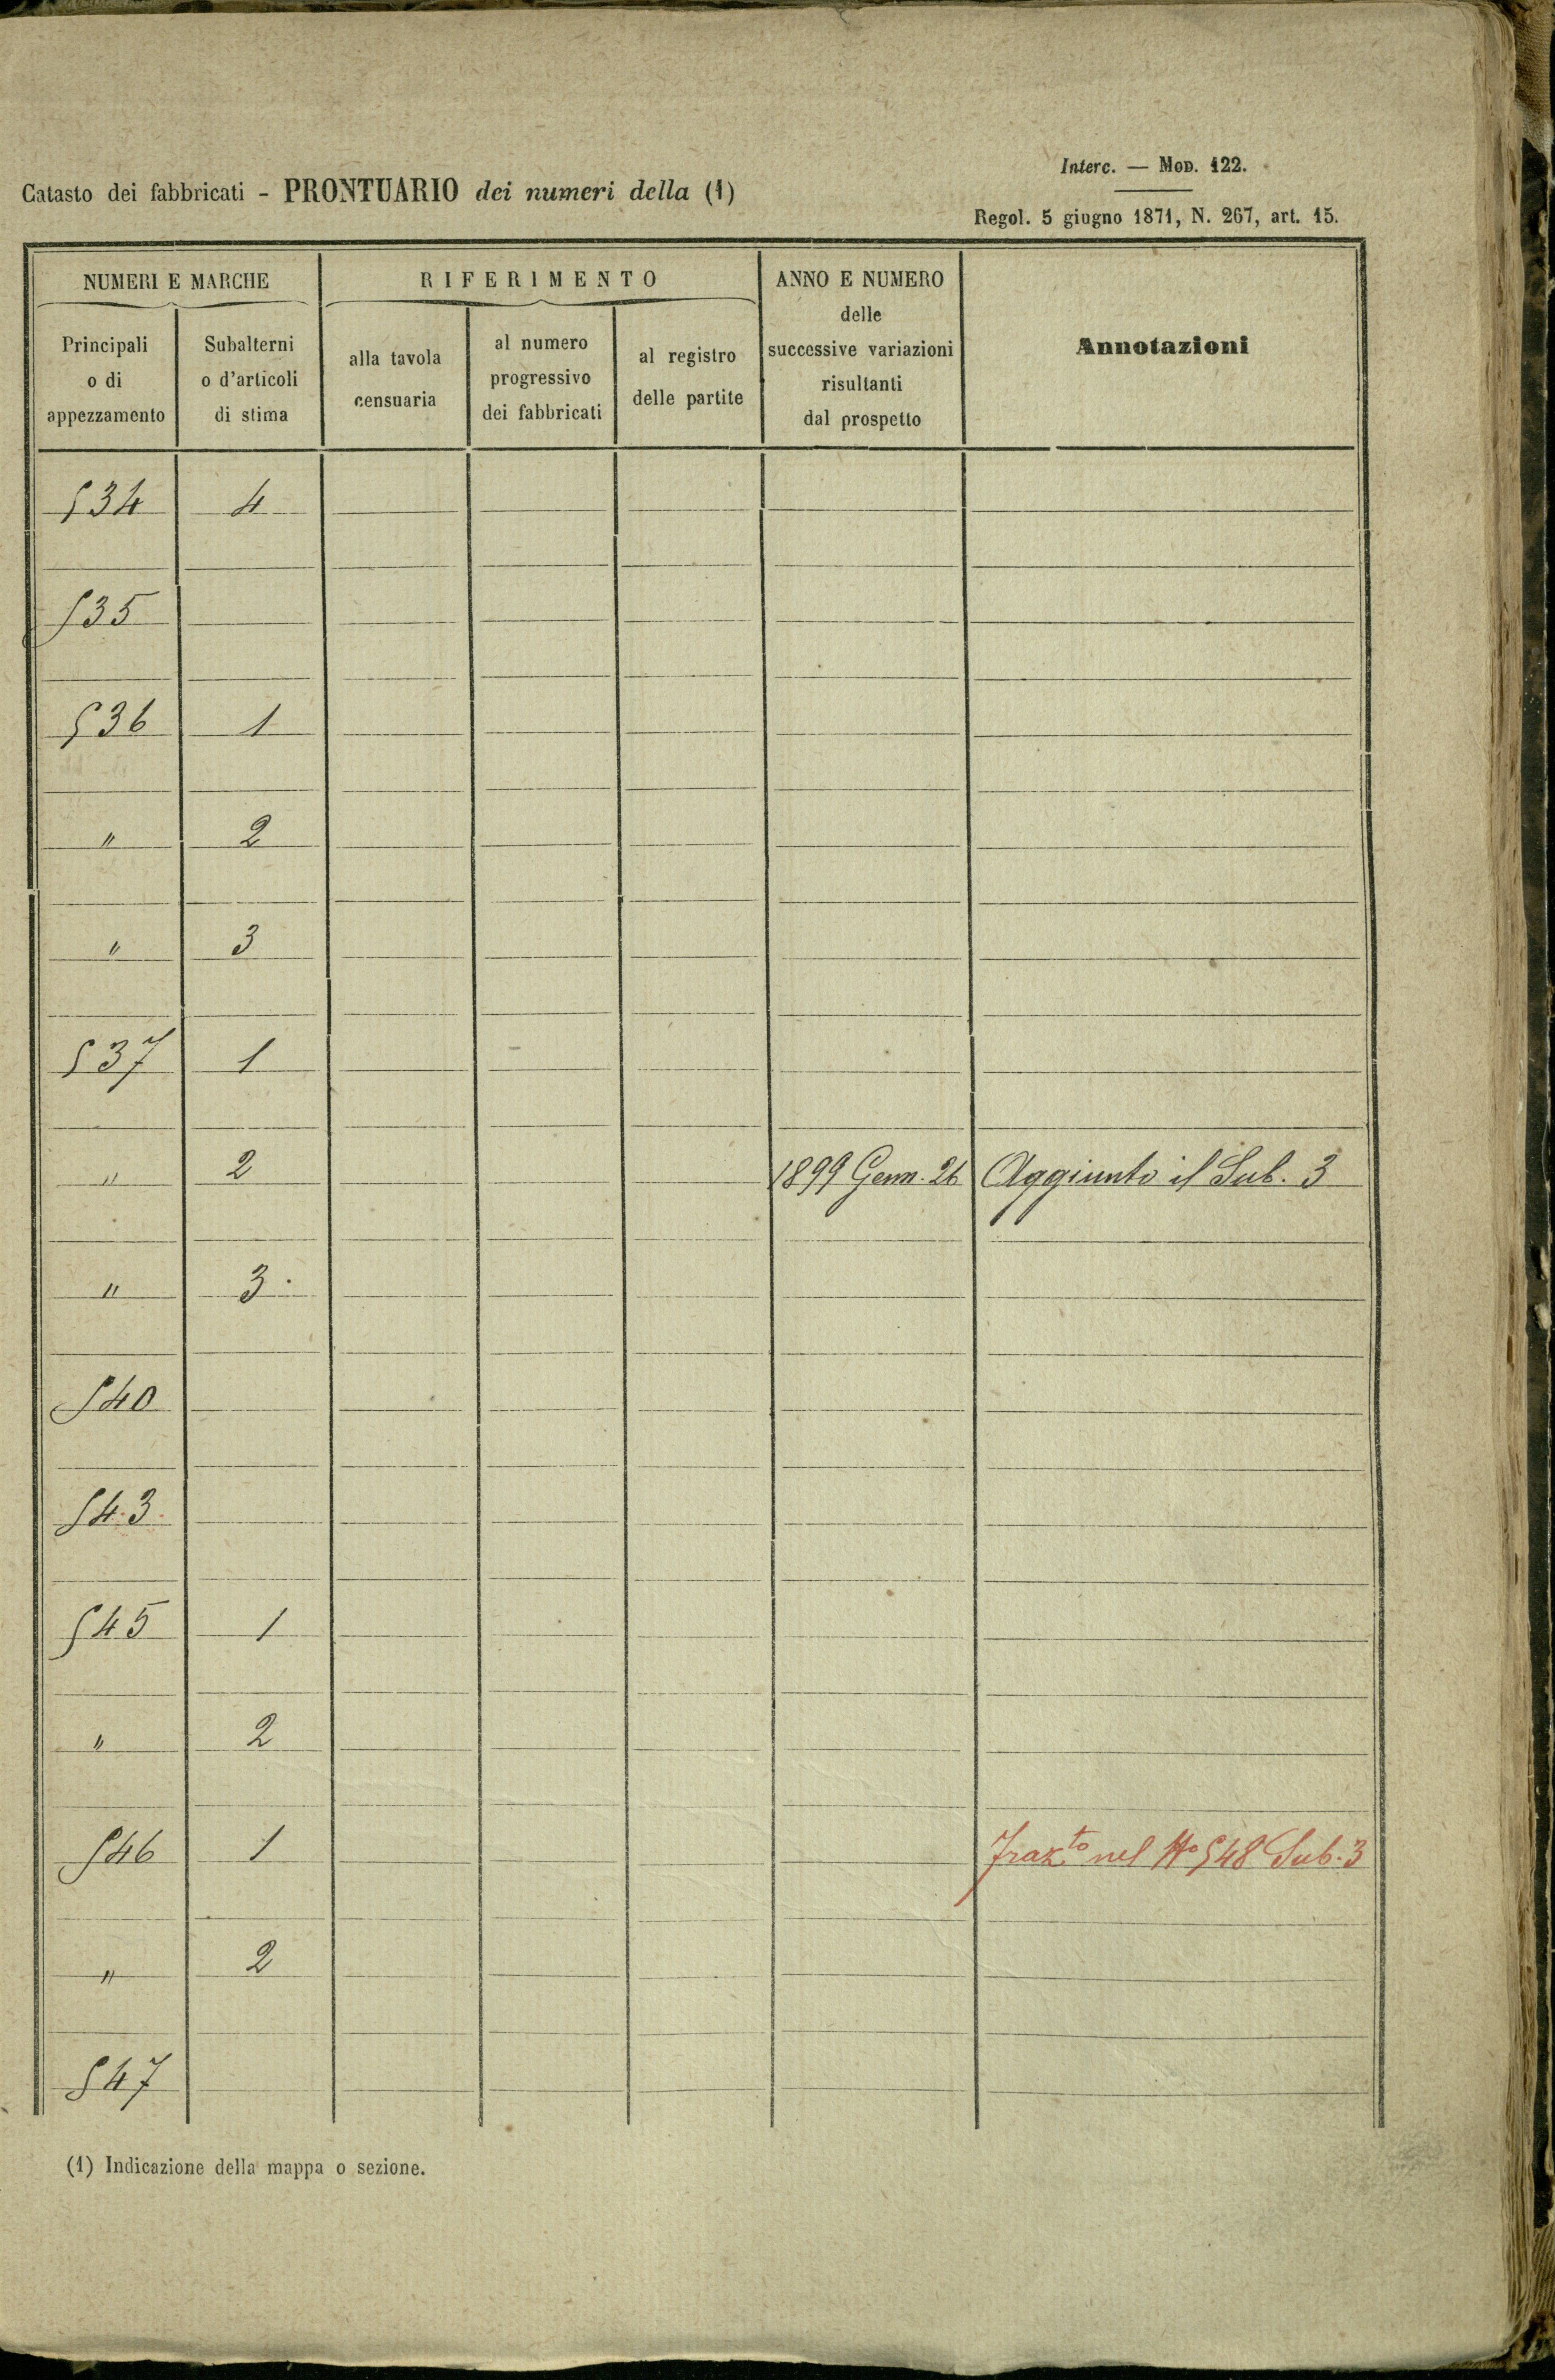 Interc. — MOD. 122.
Catasto dei fabbricati - PRONTUARIO dei numeri della (1)
Regol. 5 giugno 1871, N. 267, art. 15.
NUMERI E MARCHE RIFERIMENTO ANNO E NUMERO delle successive variazioni risultanti dal prospetto Annotazioni
Principali o di appezzamento Subalterni o d'articoli di stima alla tavola censuaria al numero progressivo dei fabbricati al registro delle partite
534 4
535
536 1
" 2
" 3
537 1
" 2 1899 Genn. 26 Aggiunto il Sub. 3
" 3.
540
543
545 1
" 2
546 1 Fraz.to nel No 548 Sub. 3
" 2
547
(1) Indicazione della mappa o sezione.